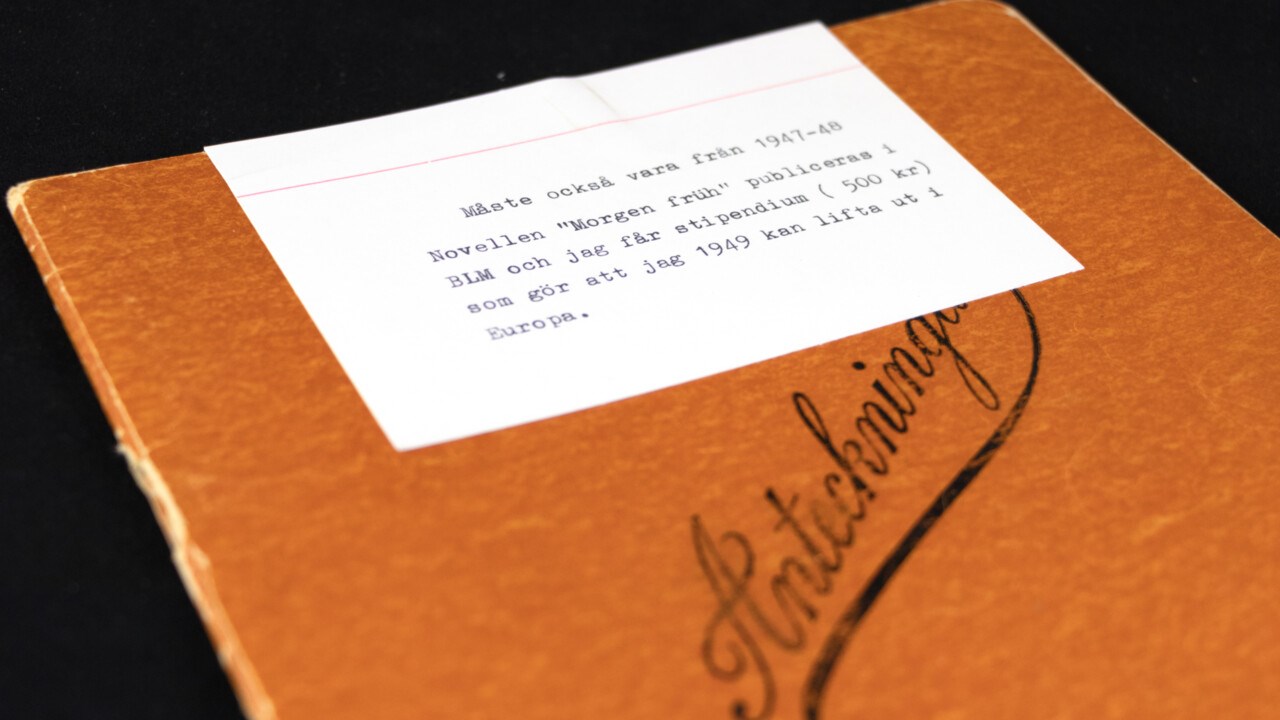 Måste också vara från 1947-48
Novellen "Morgen früh" publiceras i
BLM och jag får stipendium ( 500 kr)
som gör att jag 1949 kan lifta ut i
Europa.